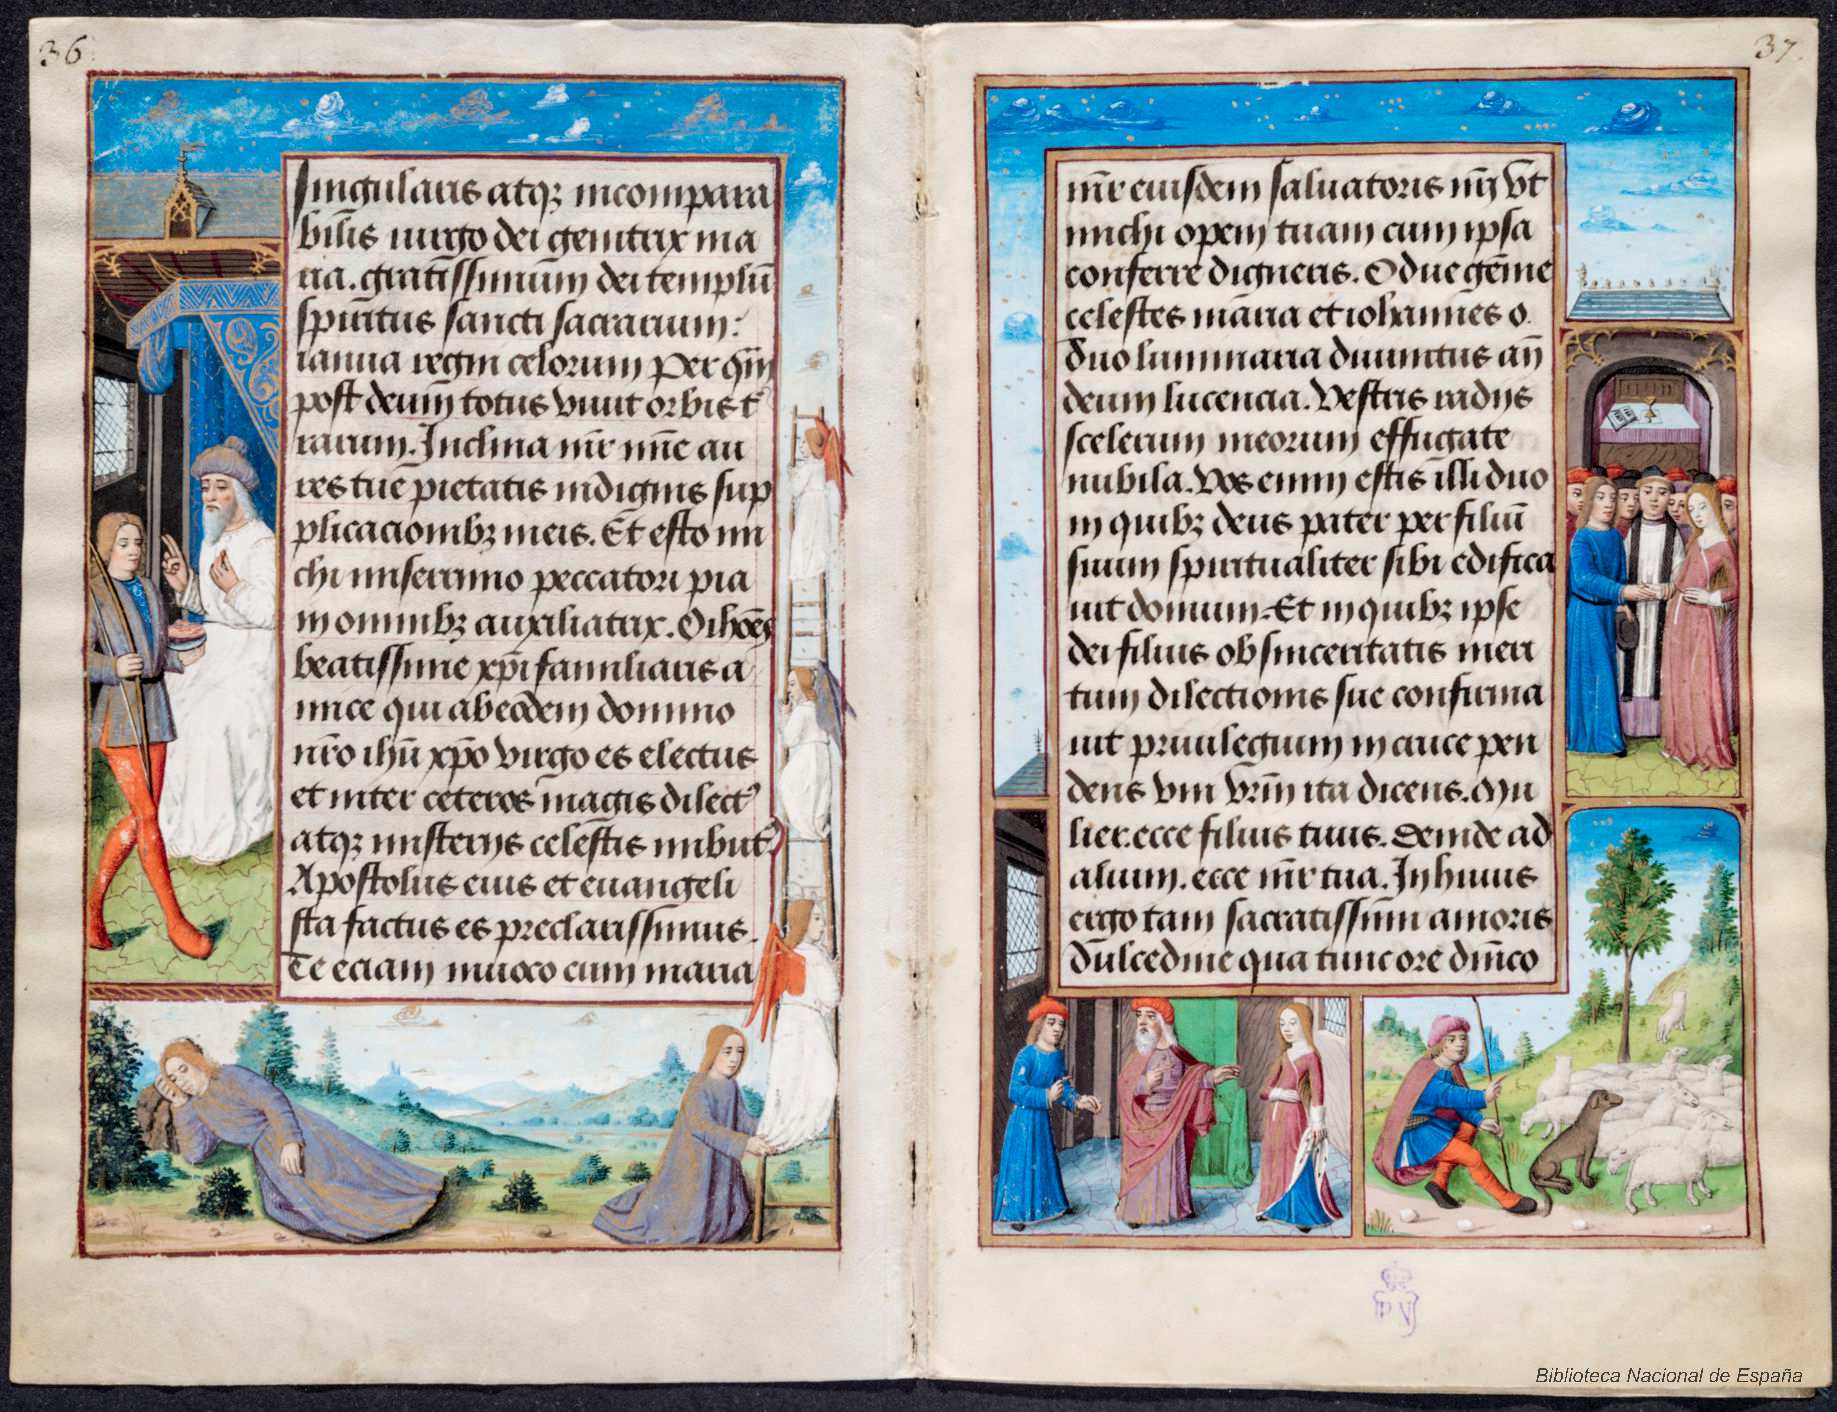 36
singularis atqꝫ incompara
bilis uirgo dei genitrix ma
ria. gratissimum dei templū
spiritus sancti sacrarium:
ianua regni celorum Per qm̄
post deum totus viuit orbis t̄
rarum. Inclina mr̄ mīe au
res tue pietatis indignis sup
plicacionibꝫ meis. Et esto mi
chi miserrimo peccatori pia
in omnibꝫ auxiliatrix. O ioh̄es
beatissime xp̄i familiaris a
mice qui ab eodem domino
nr̄o ihū xp̄o virgo es electus
et inter ceteros magis dilectꝰ
atqꝫ misterijs celestis imbutꝰ
Apostolus eius et euangeli
sta factus es preclarissimus.
Te eciam inuoco cum maria
37.
mr̄e eiusdem saluatoris nr̄j vt
michi opem tuam cum ipsa
conferre digneris. O due gēme
celestes maria et iohannes o
duo luminaria diuinitus an̄
deum lucencia. Vestris radijs
scelerum meorum effugate
nubila. Vos enim estis illi duo
in quibꝫ deus pater per filiū
suum spiritualiter sibi edifica
uit domum. Et in quibꝫ ipse
dei filius ob sinceritatis meri
tum dilectionis sue confirma
uit priuilegium in cruce pen
dens vni vr̄m ita dicens. Mu
lier. ecce filius tuus. Deinde ad
alium. ecce mr̄ tua. In huius
ergo tam sacratissimi amoris
dulcedine qua tunc ore dn̄ico
Biblioteca Nacional de España